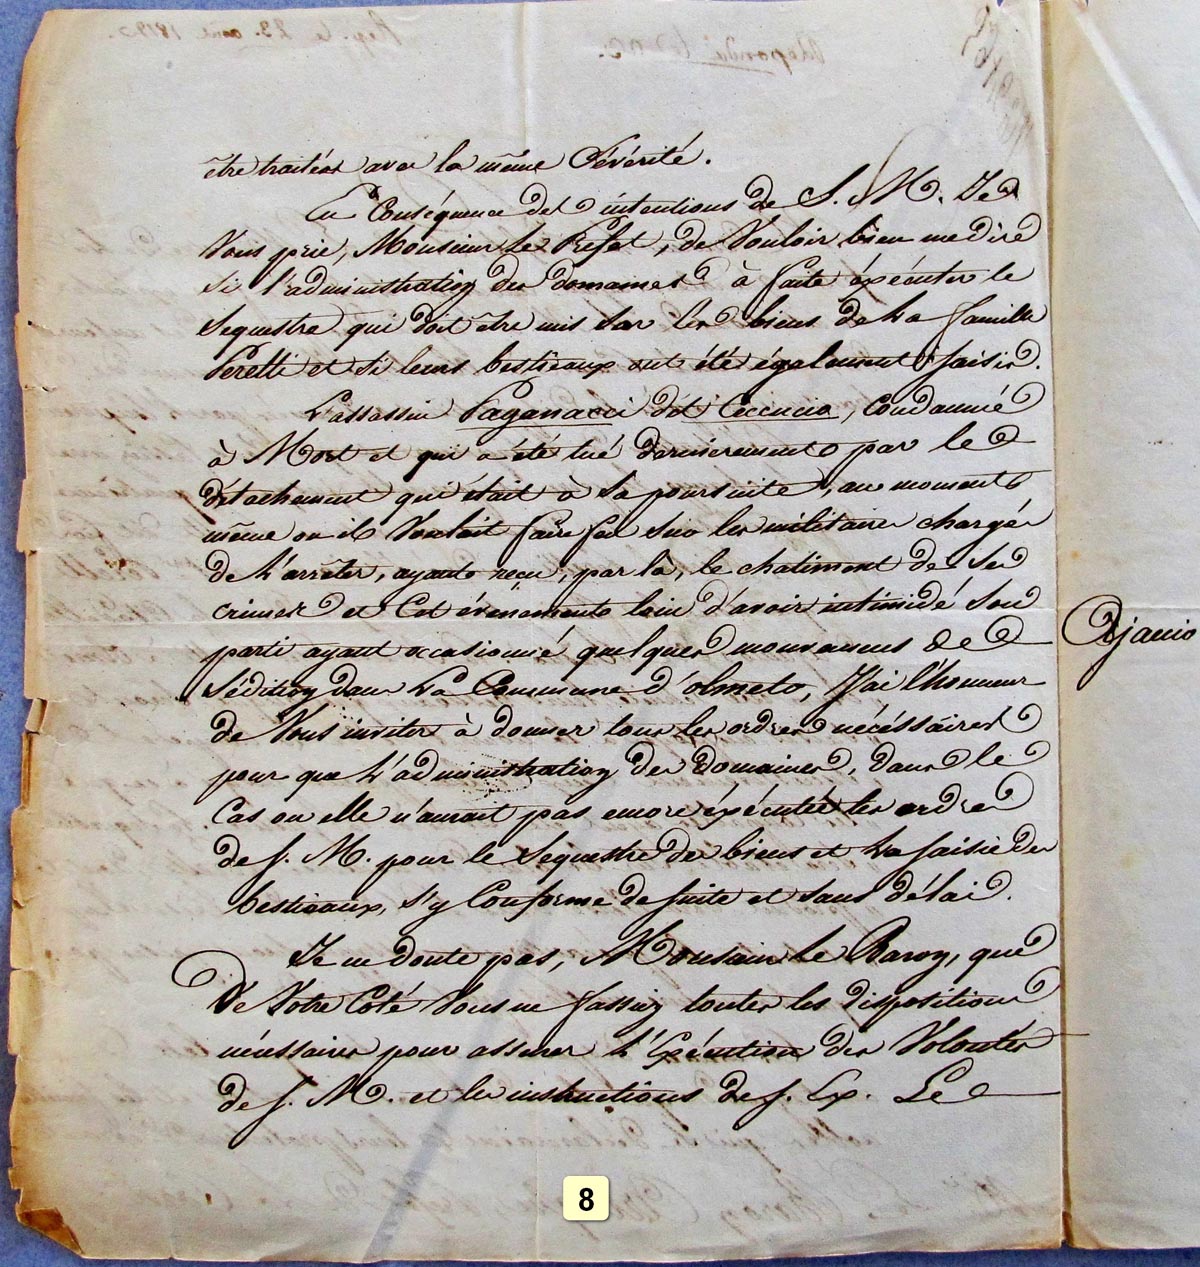 être traités avec la même Sévérité.
En Conséquence des intentions de S. M. Je
Vous prie, Monsieur le Préfet, de Vouloir bien me dire
Si l'administration des domaines à faite éxécuter le
Sequestre qui doit être mis sur les biens de la famille
Peretti et si leurs bestieaux ont été également Saisis.
L'assassin Paganacci dit Ceccucio, Condamné
à Mort et qui a été tué dernierement par le
détachement qui était à sa poursuite, au moment
même ou il Voulait faire feu sur les militaires chargés
de L'arrêter, ayant reçu, par là, le chatiment de ses
crimes et Cet évènements loin d'avoir intimidé Son
parti ayant occasionné quelques mouvemens de
Sédition dans La Commune d'olmeto, J'ai l'honneur
de Vous inviter à donner tous les ordres nécéssaires
pour que L'administration des Domaines, dans le
Cas ou elle n'aurait pas encore éxécutée les ordres
de S. M. pour le Sequestre des biens et La Saisie des
bestieaux, s'y Conforme de Suite et Sans délai.
Je ne doute pas, Monsieur le Baron, que
De Votre Coté Vous ne fassiez toutes les dispositions
nécessaires pour assurer L'Exécution des Volontés
de S. M. et les instructions de S. Ex. Le
Ajaccio
8